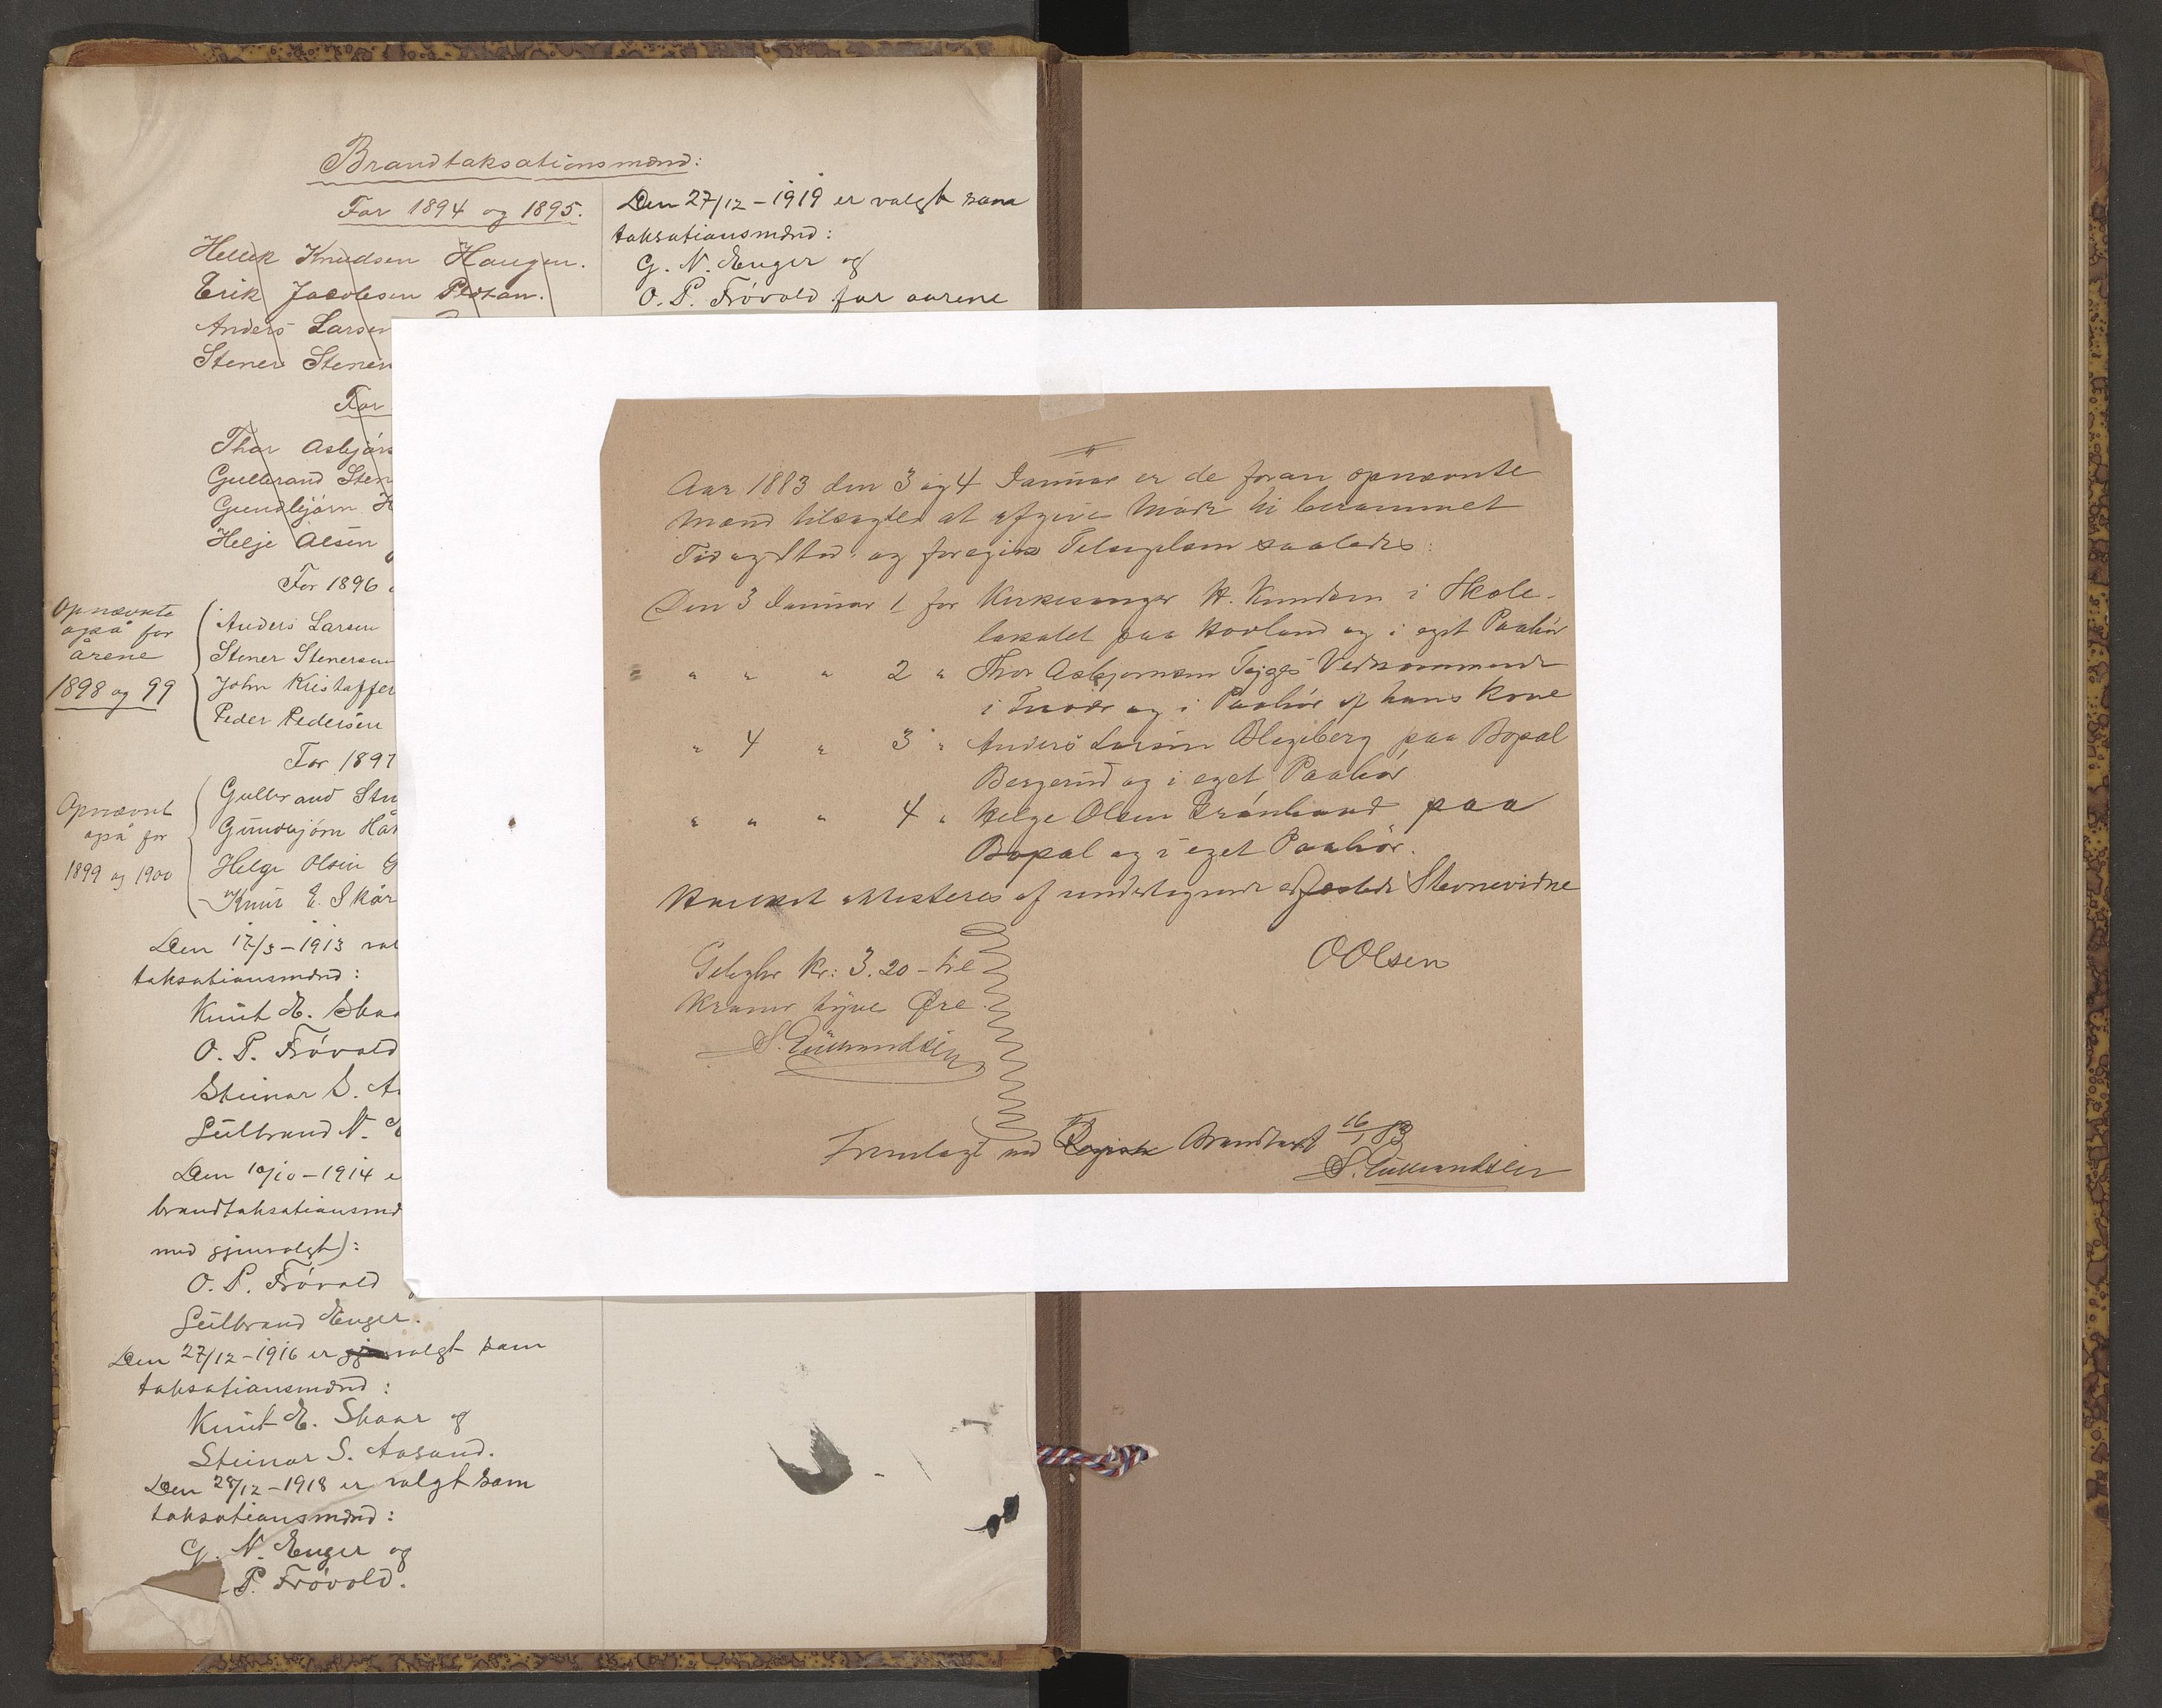 Brandtaksationsmænd:
For 1894 og 1895.
Hellik Knudsen Haugen.
Erik Jacobsen Plassan.
Anders Larsen
Stener Stener
For
Thor Asbjørs
Gulbrand Sten
Gundbjørn H
Helje Olsen
For 1896
Opnævnte
også for
årene
1898 og 99
Anders Larsen
Stener Stenersen
John Kristoffer
Peder Pedersen
For 1897
Opnævnt
også for
1899 og 1900
Gulbrand Ste
Gundbjørn Hå
Helge Olsen G
Knut E. Skår
Den 17/3-1913 val
taksationsmænd:
Knut E. Skaa
O. P. Frøvold
Steinar S. Aa
Gulbrand N. E
Den 10/10-1914 e
brandtaksationsmæ
med gjenvalgt):
O. P. Frøvold
Gulbrand Enger.
Den 27/12-1916 er valgt som
taksationsmænd:
Knut E. Skaar og
Steinar S. Aasand.
Den 28/12-1918 er valgt som
taksationsmænd:
G. N. Enger og
P. Frøvold.
Den 27/12-1919 er valgt som
taksationsmænd:
G. N. Enger og
O. P. Frøvold for aarene
Aar 1883 den 3 og 4 Januar er de foran opnævnte
Mænd tilsagte at afgive Møde til berammet
Tid og Sted, og foregik Tilsigelsen saaledes:
Den 3 Januar 1 for Kirkesanger H. Knudsen i Skole-
lokalet paa Hovland og i eget Paahør
" " " 2 " Thor Asbjørnsen Vedkommende
i og i Paahør af hans Kone
" 4 " 3 " Anders Larsen Blegeberg paa Bopæl
Bergerud og i eget Paahør
" " " 4 " Helge Olsen Grønland paa
Bopæl og i eget Paahør.
Hvilket attesteres af undertegnede edfæstede Stevnevidne
OOlsen
Gebyhr Kr: 3.20 - tre
Kroner tyve Øre.
S. Gulbrandsen
Fremlagt ved Brandtaxt 16/1 83
S. Gulbrandsen